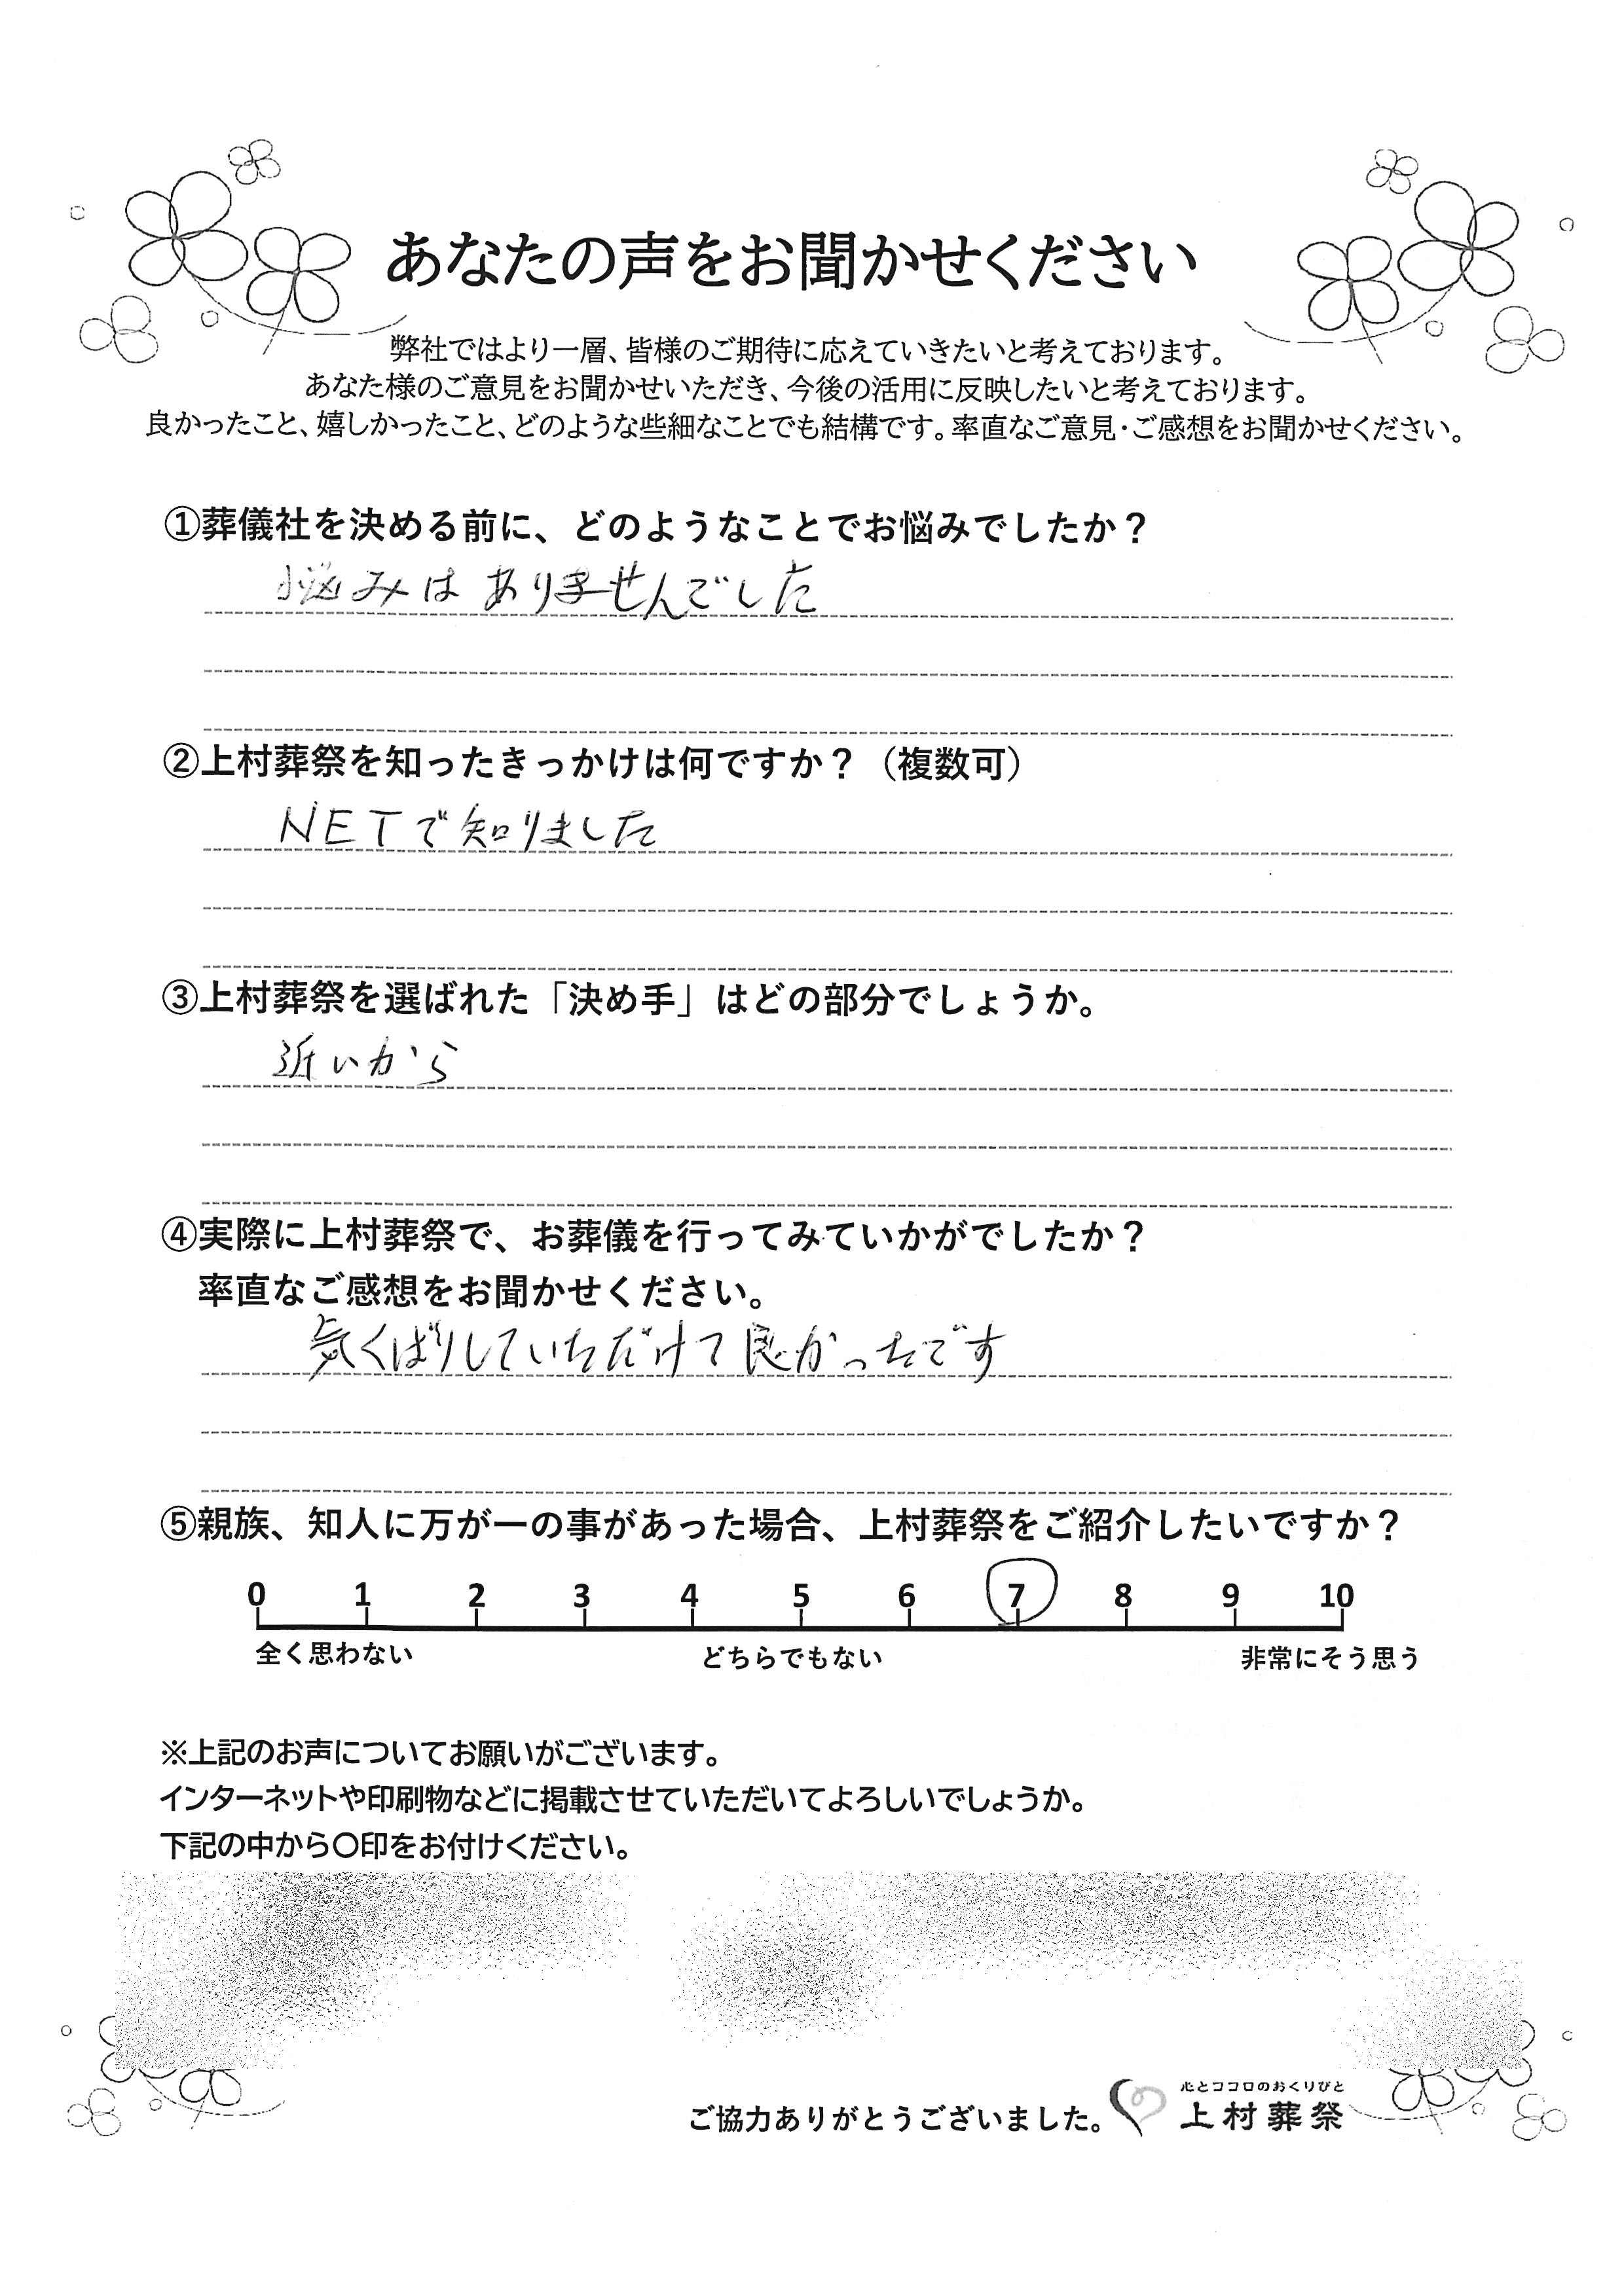 あなたの声をお聞かせください
弊社ではより一層、皆様のご期待に応えていきたいと考えております。
あなた様のご意見をお聞かせいただき、今後の活用に反映したいと考えております。
良かったこと、嬉しかったこと、どのような些細なことでも結構です。率直なご意見・ご感想をお聞かせください。
①葬儀社を決める前に、どのようなことでお悩みでしたか？
悩みはありませんでした
②上村葬祭を知ったきっかけは何ですか？（複数可）
NETで知りました
③上村葬祭を選ばれた「決め手」はどの部分でしょうか。
近いから
④実際に上村葬祭で、お葬儀を行ってみていかがでしたか？
率直なご感想をお聞かせください。
気くばりしていただけて良かったです
⑤親族、知人に万が一の事があった場合、上村葬祭をご紹介したいですか？
0 1 2 3 4 5 6 7 8 9 10
全く思わない どちらでもない 非常にそう思う
※上記のお声についてお願いがございます。
インターネットや印刷物などに掲載させていただいてよろしいでしょうか。
下記の中から〇印をお付けください。
心とココロのおくりびと
ご協力ありがとうございました。 上村葬祭